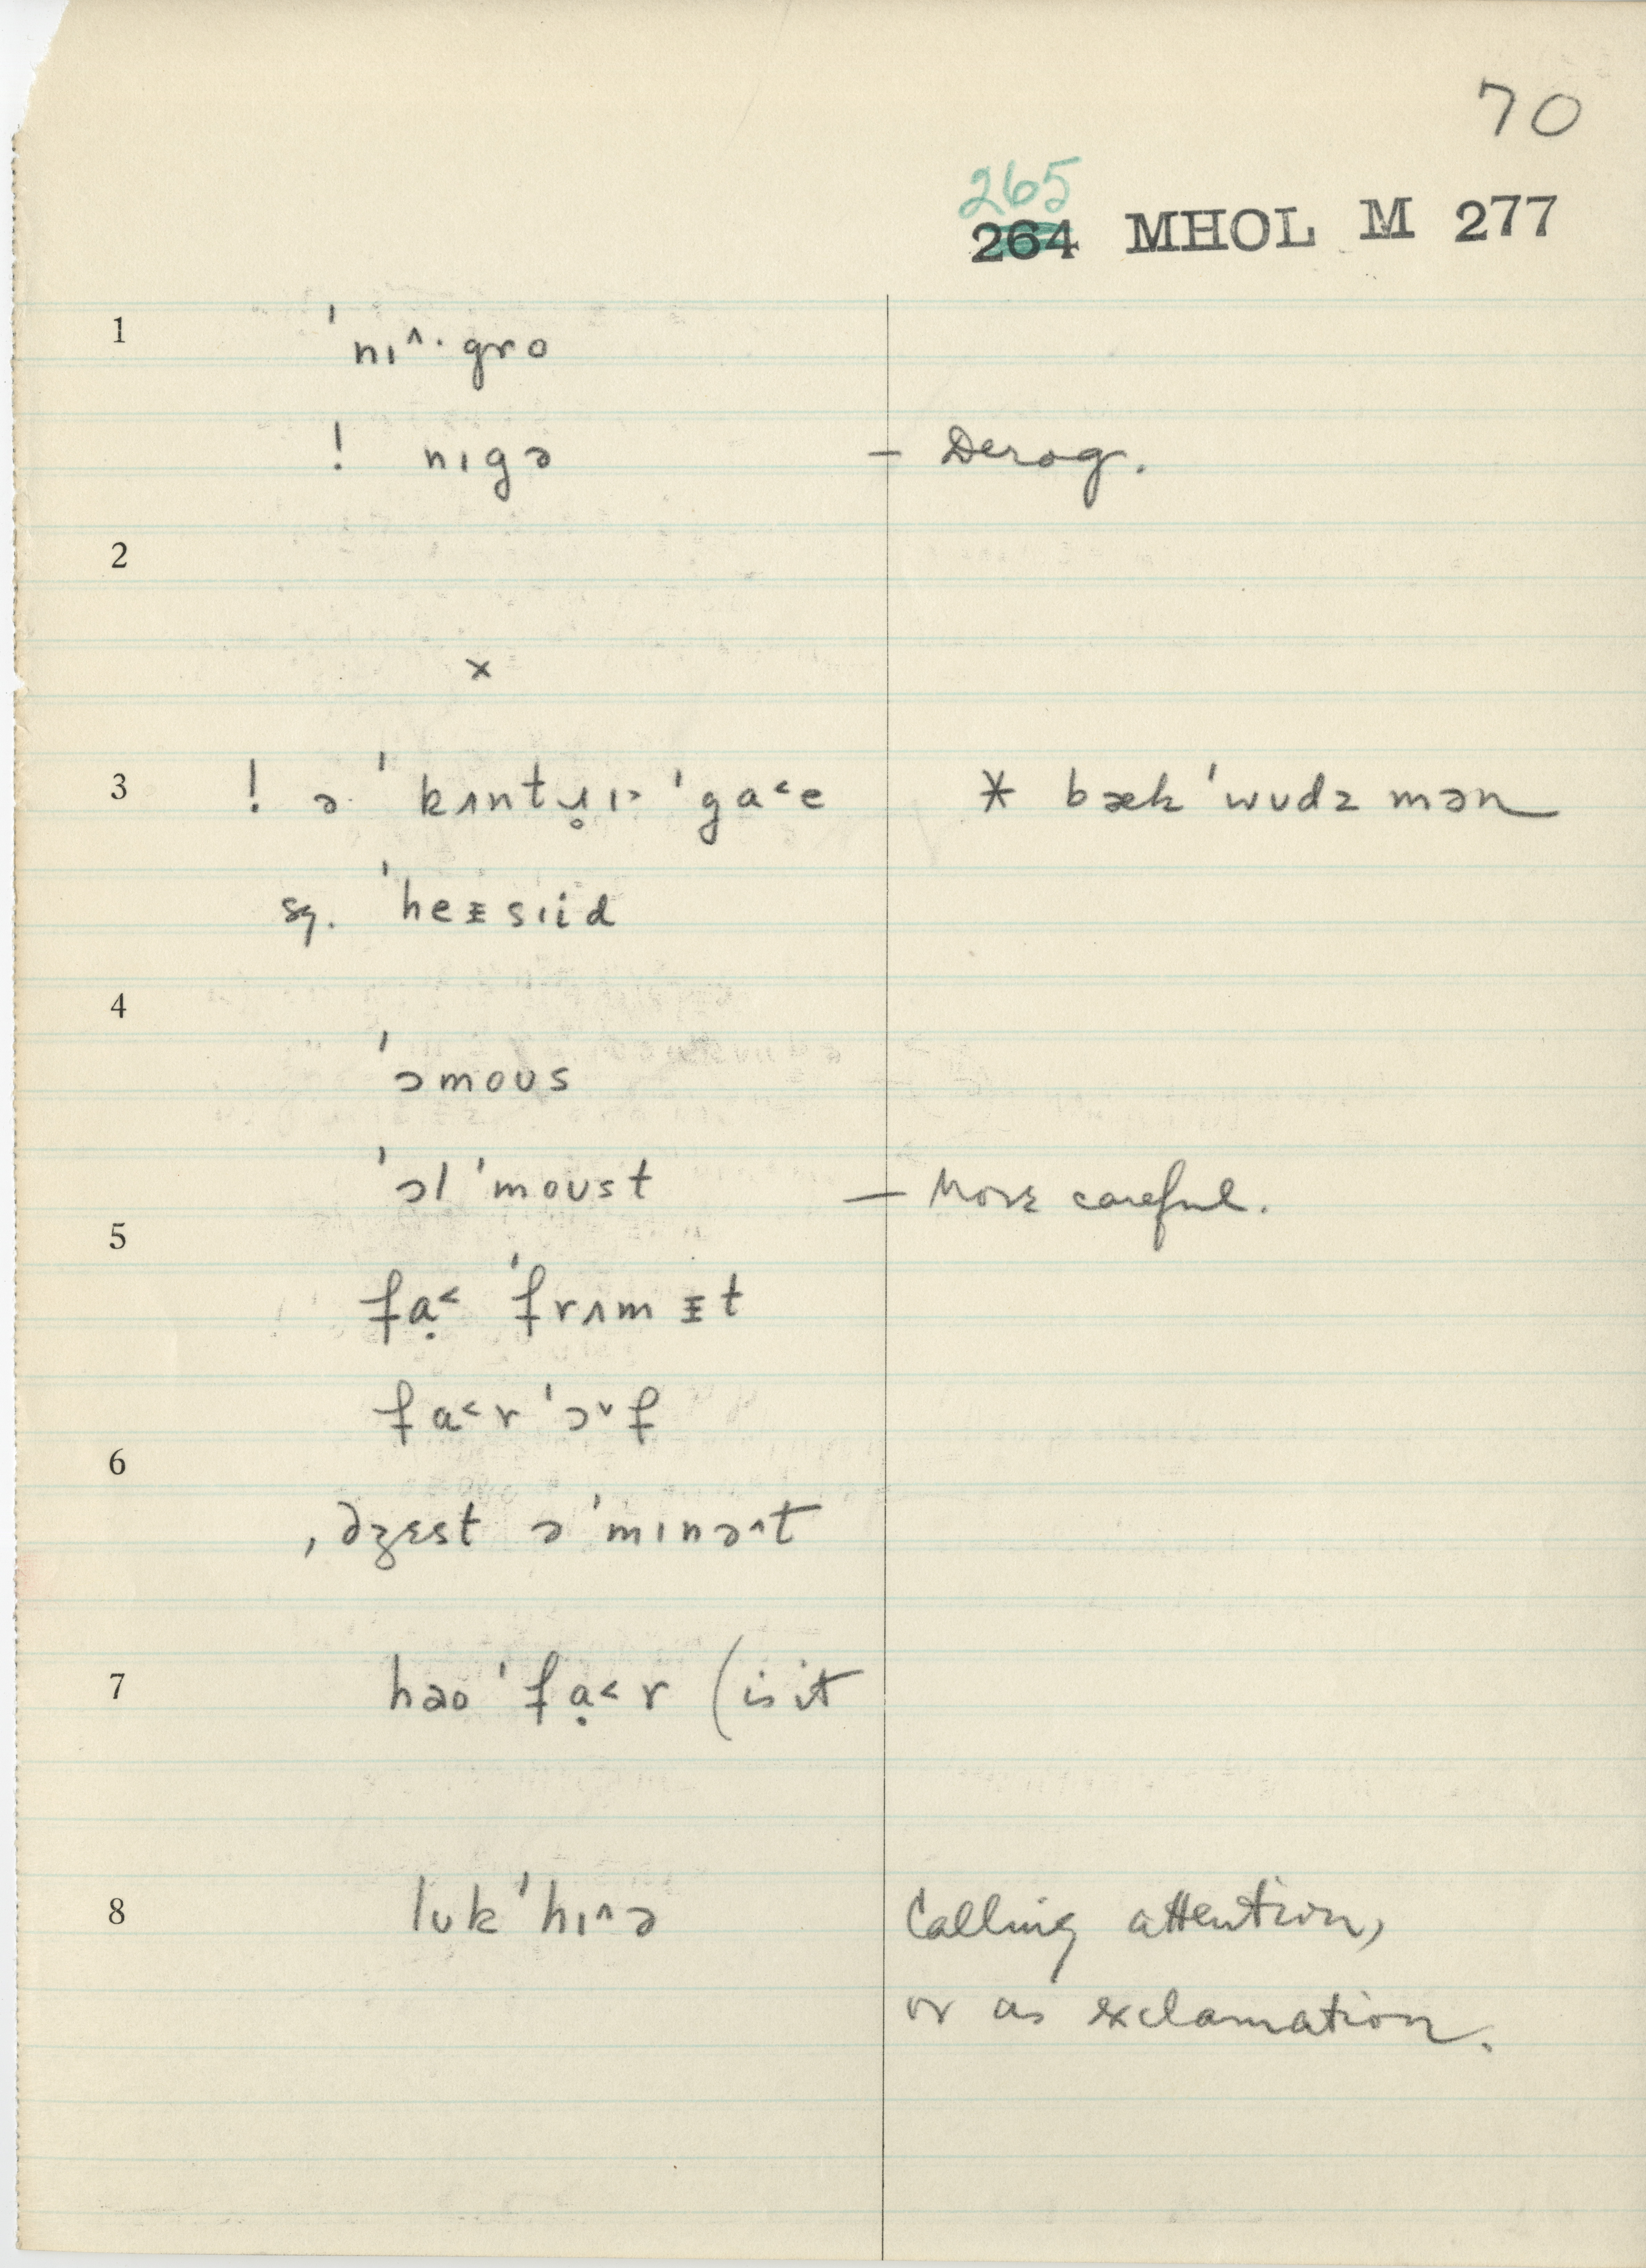 70
265
264 MHOL M 277
1 ˈnɪ^·gro
! nɪgə – Derog.
2
x
3 ! ə ˈkʌntɹ̥ɪ> ˈga<e * bækˈwudz mən
sq. ˈheᵻsɪid
4
ˈɔmoʊs
ˈɔlˈmoʊst – More careful.
5
fạ< ˈfrʌmᵻt
fa<rˈɔ˅f
6
ˌdʒɛst əˈmɪnə^t
7 həoˈfạ<r (is it
8 lʊkˈhɪ^ə Calling attention,
or as exclamation.